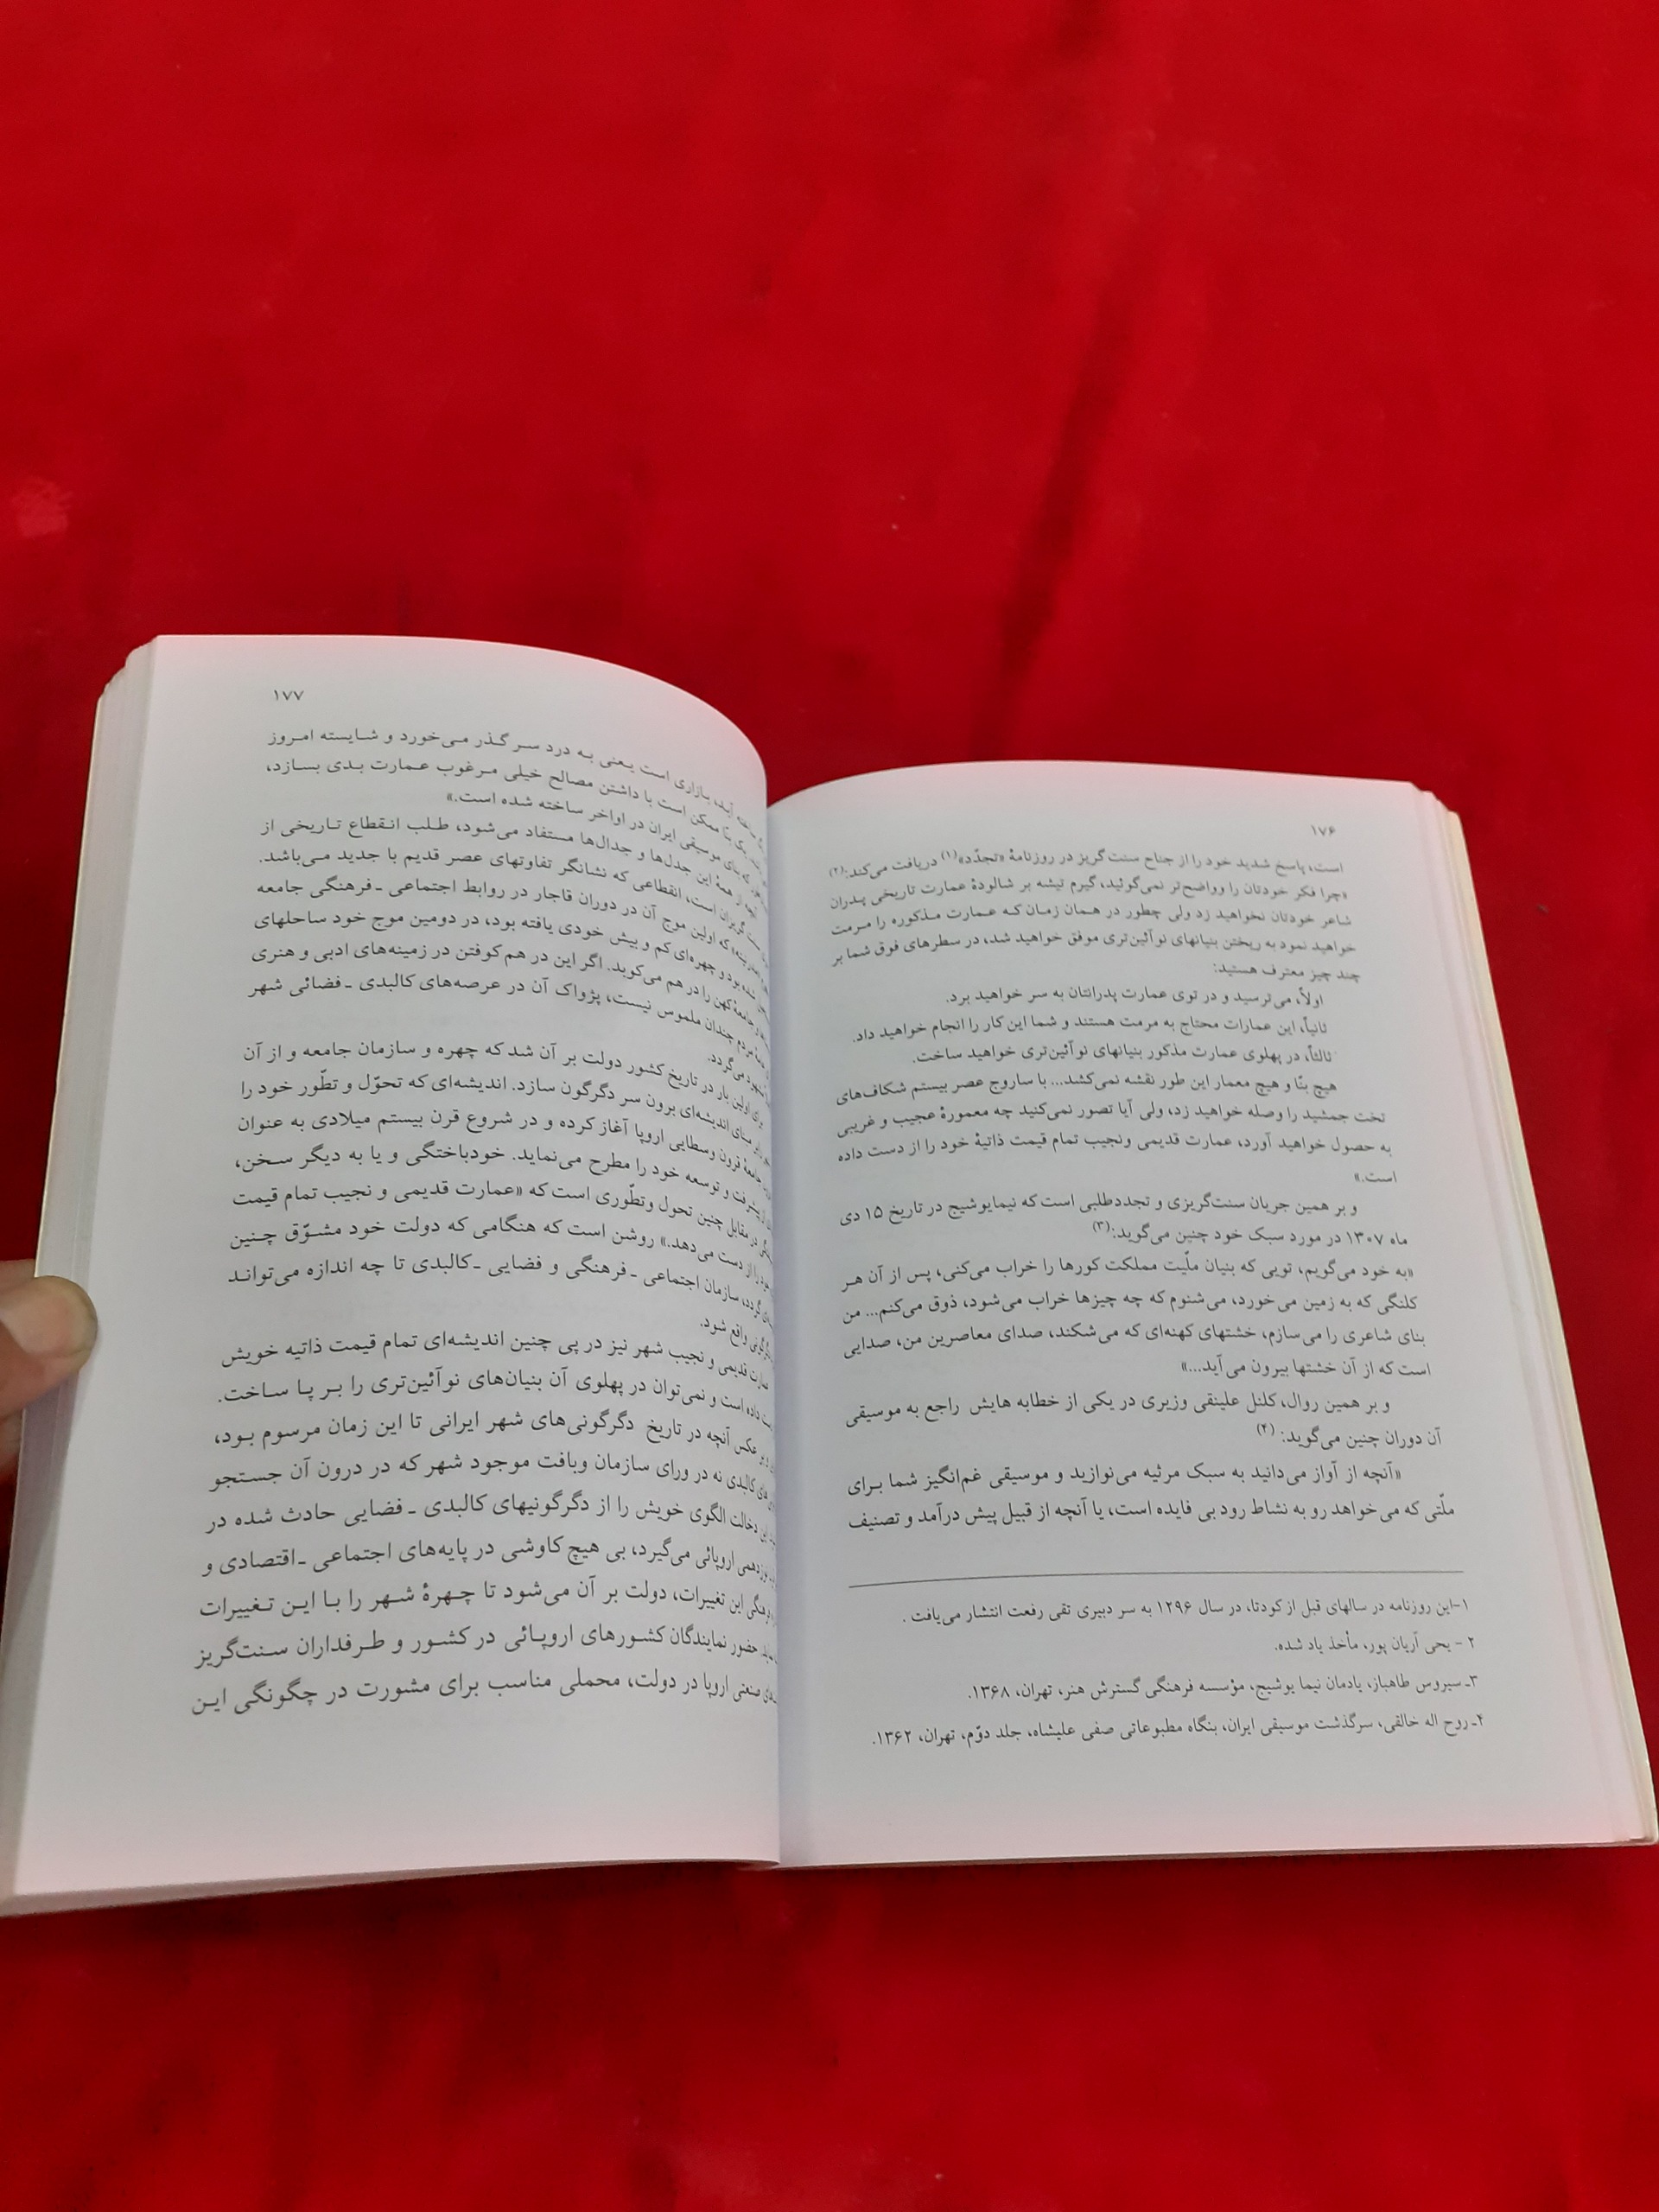 ۱۷۶
است، پاسخ شدید خود را از جناح سنت‌گریز در روزنامهٔ «تجدّد»(۱) دریافت می‌کند:(۲)
«چرا فکر خودتان را وواضح‌تر نمی‌گوئید، گیرم تیشه بر شالودهٔ عمارت تاریخی پدران
شاعر خودتان نخواهید زد ولی چطور در همان زمان که عمارت مذکوره را مرمت
خواهید نمود به ریختن بنیانهای نوآئین‌تری موفق خواهید شد، در سطرهای فوق شما بر
چند چیز معترف هستید:
اولاً، می‌ترسید و در توی عمارت پدرانتان به سر خواهید برد.
ثانیاً، این عمارات محتاج به مرمت هستند و شما این کار را انجام خواهید داد.
ثالثاً، در پهلوی عمارت مذکور بنیانهای نوآئین‌تری خواهید ساخت.
هیچ بنّا و هیچ معمار این طور نقشه نمی‌کشد... با ساروج عصر بیستم شکاف‌های
تخت جمشید را وصله خواهید زد، ولی آیا تصور نمی‌کنید چه معمورهٔ عجیب و غریبی
به حصول خواهید آورد، عمارت قدیمی ونجیب تمام قیمت ذاتیهٔ خود را از دست داده
است.»
و بر همین جریان سنت‌گریزی و تجددطلبی است که نیمایوشیج در تاریخ ۱۵ دی
ماه ۱۳۰۷ در مورد سبک خود چنین می‌گوید:(۳)
«به خود می‌گویم، تویی که بنیان ملّیت مملکت کورها را خراب می‌کنی، پس از آن هر
کلنگی که به زمین می‌خورد، می‌شنوم که چه چیزها خراب می‌شود، ذوق می‌کنم... من
بنای شاعری را می‌سازم، خشتهای کهنه‌ای که می‌شکند، صدای معاصرین من، صدایی
است که از آن خشتها بیرون می‌آید...»
و بر همین روال، کلنل علینقی وزیری در یکی از خطابه هایش راجع به موسیقی
آن دوران چنین می‌گوید: (۴)
«آنچه از آواز می‌دانید به سبک مرثیه می‌نوازید و موسیقی غم‌انگیز شما برای
ملّتی که می‌خواهد رو به نشاط رود بی فایده است، یا آنچه از قبیل پیش درآمد و تصنیف
۱-این روزنامه در سالهای قبل از کودتا، در سال ۱۲۹۶ به سر دبیری تقی رفعت انتشار می‌یافت .
۲ - یحی آریان پور، مأخذ یاد شده.
۳ـ سیروس طاهباز، یادمان نیما یوشیج، مؤسسه فرهنگی گسترش هنر، تهران، ۱۳۶۸.
۴ـ روح اله خالقی، سرگذشت موسیقی ایران، بنگاه مطبوعاتی صفی علیشاه، جلد دوّم، تهران، ۱۳۶۲.
۱۷۷
ساخته آید، بازاری است یعنی به درد سر گذر می‌خورد و شایسته امروز
یک بنّا ممکن است با داشتن مصالح خیلی مرغوب عمارت بدی بسازد،
که بنای موسیقی ایران در اواخر ساخته شده است.»
آنچه از همهٔ این جدل‌ها و جدال‌ها مستفاد می‌شود، طلب انقطاع تاریخی از
سنت گریزان است، انقطاعی که نشانگر تفاوتهای عصر قدیم با جدید می‌باشد.
که اولین موج آن در دوران قاجار در روابط اجتماعی ـ فرهنگی جامعه
شده بود و چهره‌ای کم و بیش خودی یافته بود، در دومین موج خود ساحلهای
جامعهٔ کهن را در هم می‌کوبد. اگر این در هم کوفتن در زمینه‌های ادبی و هنری
مردم چندان ملموس نیست، پژواک آن در عرصه‌های کالبدی ـ فضائی شهر
می‌گردد.
برای اولین بار در تاریخ کشور دولت بر آن شد که چهره و سازمان جامعه و از آن
مبنای اندیشه‌ای برون سر دگرگون سازد. اندیشه‌ای که تحوّل و تطّور خود را
جامعهٔ قرون وسطایی اروپا آغاز کرده و در شروع قرن بیستم میلادی به عنوان
پیشرفت و توسعه خود را مطرح می‌نماید. خودباختگی و یا به دیگر سخن،
در مقابل چنین تحول وتطّوری است که «عمارت قدیمی و نجیب تمام قیمت
خود را از دست می‌دهد.» روشن است که هنگامی که دولت خود مشوّق چنین
گردد، سازمان اجتماعی ـ فرهنگی و فضایی ـ کالبدی تا چه اندازه می‌تواند
دگرگونی واقع شود.
عمارت قدیمی و نجیب شهر نیز در پی چنین اندیشه‌ای تمام قیمت ذاتیه خویش
داده است و نمی‌توان در پهلوی آن بنیان‌های نوآئین‌تری را بر پا ساخت.
بر عکس آنچه در تاریخ دگرگونی‌های شهر ایرانی تا این زمان مرسوم بود،
های کالبدی نه در ورای سازمان وبافت موجود شهر که در درون آن جستجو
این دخالت الگوی خویش را از دگرگونیهای کالبدی ـ فضایی حادث شده در
نوزدهمی اروپائی می‌گیرد، بی هیچ کاوشی در پایه‌های اجتماعی ـ اقتصادی و
فرهنگی این تغییرات، دولت بر آن می‌شود تا چهرهٔ شهر را با این تغییرات
حضور نمایندگان کشورهای اروپائی در کشور و طرفداران سنت‌گریز
صنعتی اروپا در دولت، محملی مناسب برای مشورت در چگونگی این